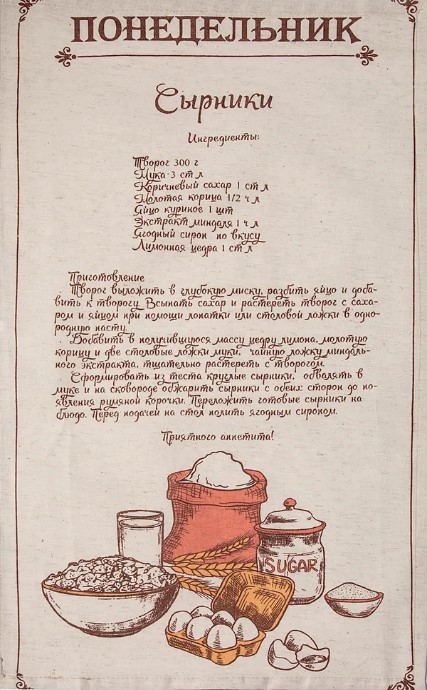 ПОНЕДЕЛЬНИК
Сырники
Ингредиенты:
Творог 300 г
Мука 3 ст л
Коричневый сахар 1 ст л
Молотая корица 1/2 ч л
Яйцо куриное 1 шт
Экстракт миндаля 1 ч л
Ягодный сироп по вкусу
Лимонная цедра 1 ст л
Приготовление
Творог выложить в глубокую миску, разбить яйцо и доба-
вить к творогу. Всыпать сахар и растереть творог с саха-
ром и яйцом при помощи лопатки или столовой ложки в одно-
родную пасту.
Добавить в получившуюся массу цедру лимона, молотую
корицу и две столовые ложки муки, чайную ложку миндаль-
ного экстракта, тщательно растереть с творогом.
Сформировать из теста круглые сырники, обвалять в
муке и на сковороде обжарить сырники с обеих сторон до по-
явления румяной корочки. Переложить готовые сырники на
блюдо. Перед подачей на стол полить ягодным сиропом.
Приятного аппетита!
SUGAR